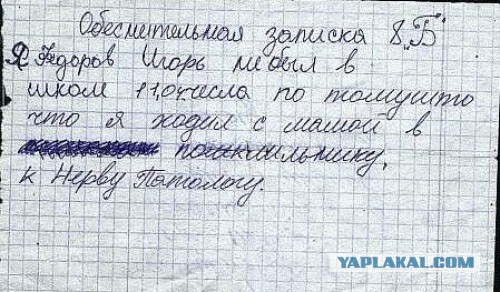 Обеснительная записка 8„Б"
Я Федоров Игорь небыл в
школ 11,04числа по томушто
что я ходил с мамой в
к Нерву Патологу.
YAPLAKAL.COM